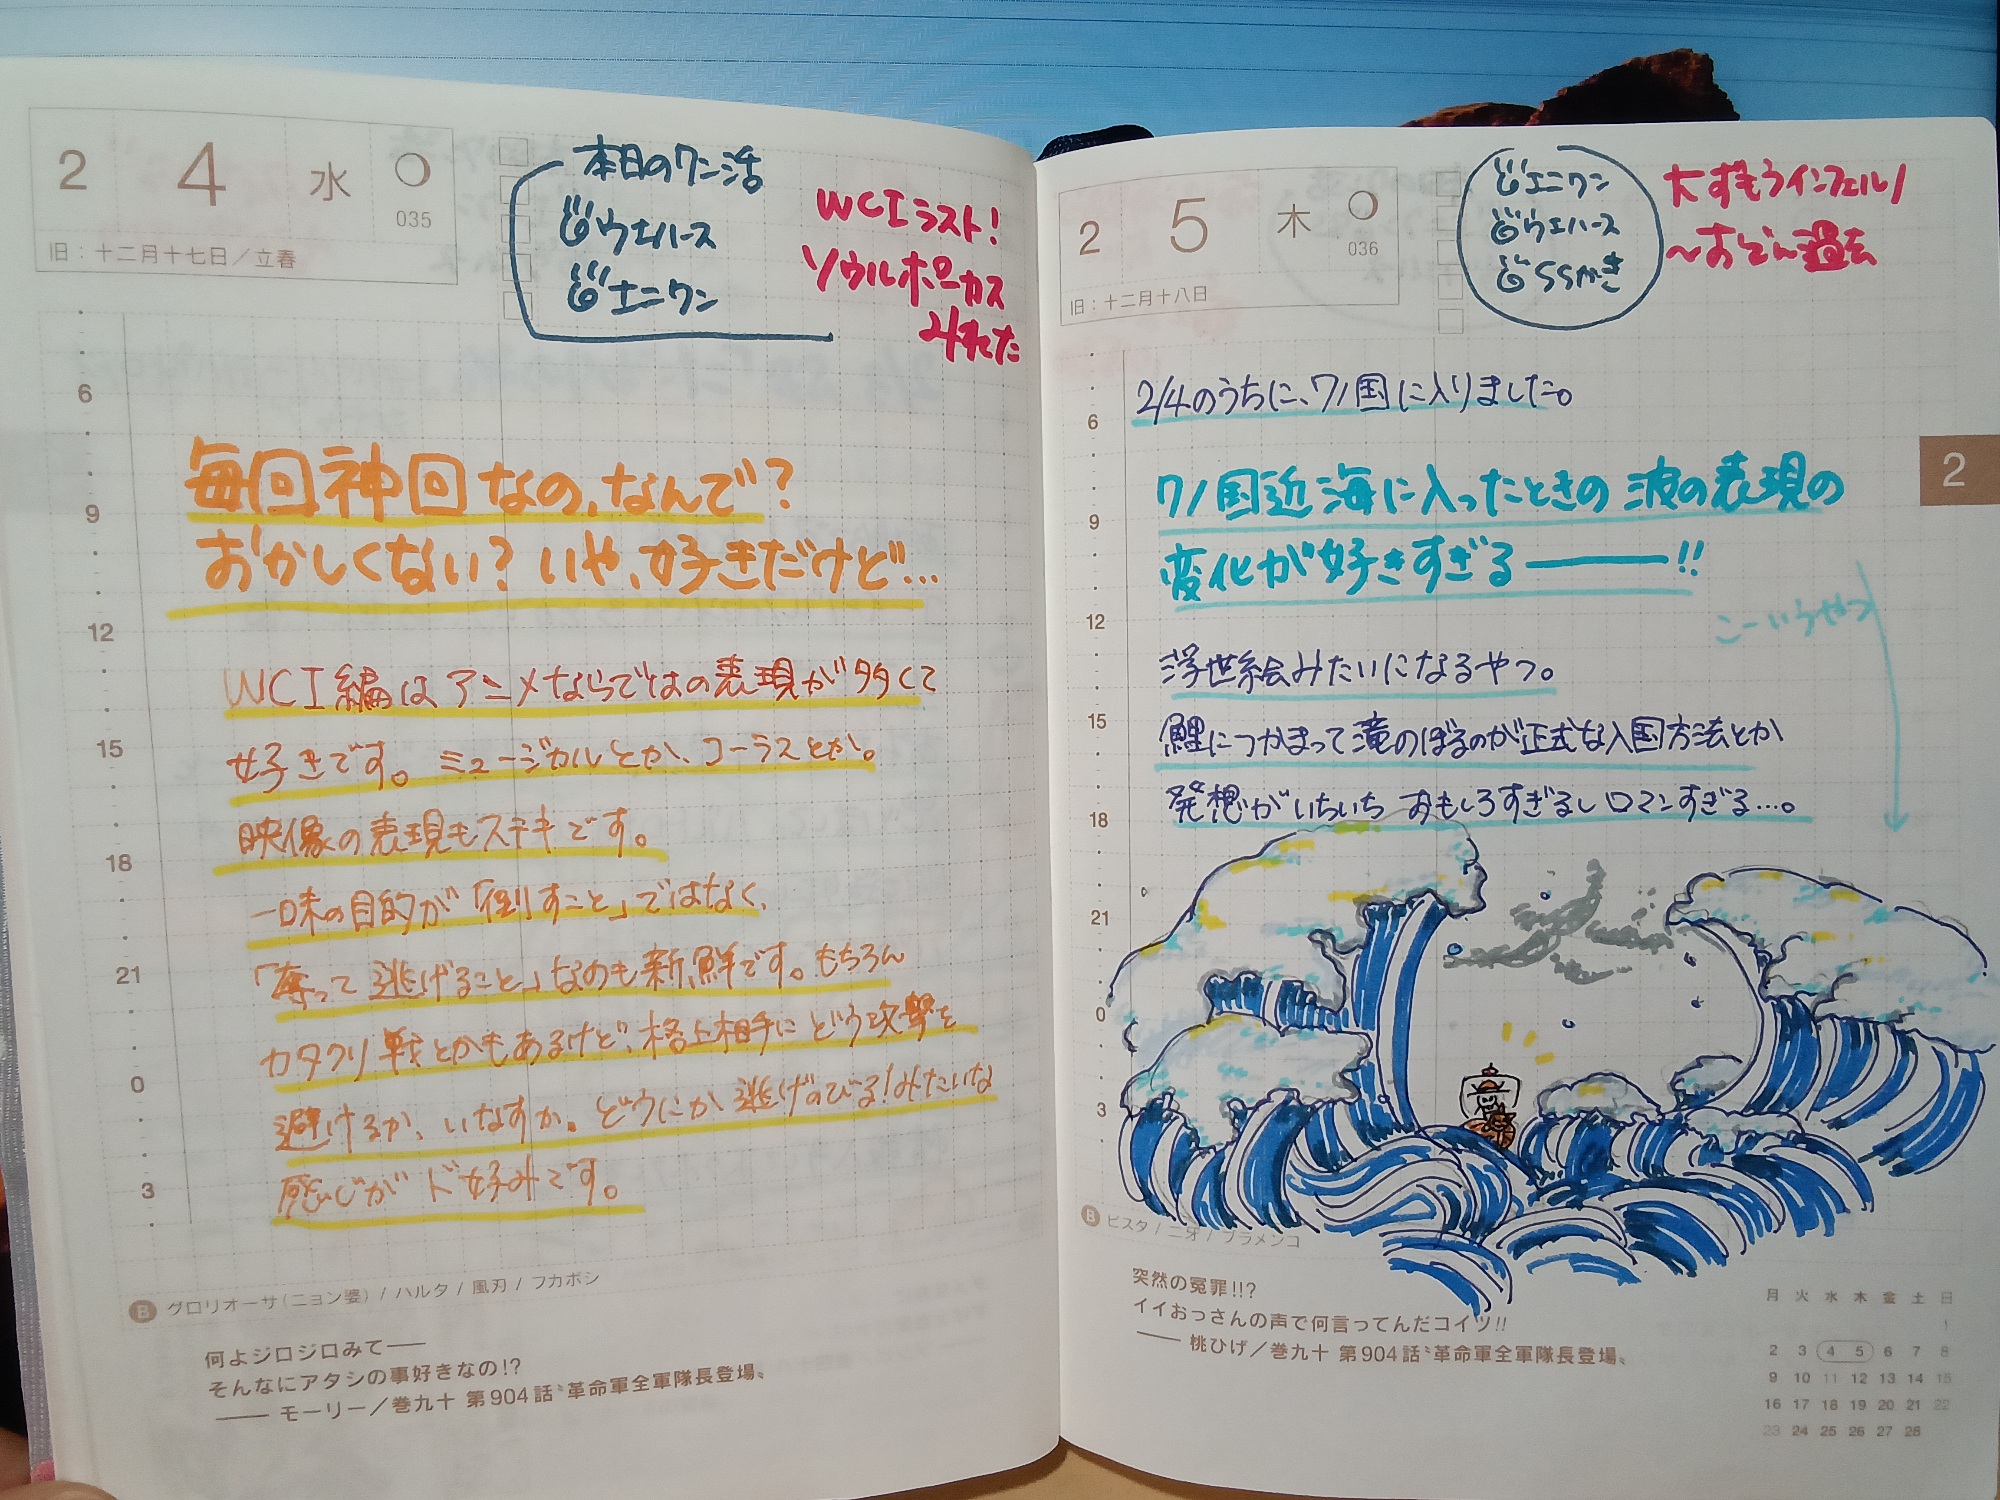 2 4 水
035
旧：十二月十七日／立春
本日のワン活
ウエハース
エニワン
WCIラスト!
ソウルポーカス
みれた
6
9
12
15
18
21
0
3
毎回神回なの、なんで?
おかしくない? いや、好きだけど…
WCI編はアニメならではの表現が多くて
好きです。ミュージカルとか、コーラスとか。
映像の表現もステキです。
一味の目的が「倒すこと」ではなく、
「奪って逃げること」なのも新鮮です。もちろん
カタクリ戦とかもあるけど、格上相手にどう攻撃を
避けるか、いなすか。どうにか逃げのびる!みたいな
感じがド好みです。
B グロリオーサ(ニョン婆) / ハルタ / 風刃 / フカボシ
何よジロジロみて——
そんなにアタシの事好きなの!?
—— モーリー／巻九十 第904話〝革命軍全軍隊長登場〟
2 5 木
036
旧：十二月十八日
エニワン
ウエハース
SSかき
大ずもうインフェルノ
〜おでん過去
2
6
9
12
15
18
21
0
3
2/4のうちに、ワノ国に入りました。
ワノ国近海に入ったときの波の表現の
変化が好きすぎる——!!
こーいうやつ
浮世絵みたいになるやつ。
鯉につかまって滝のぼるのが正式な入国方法とか
発想がいちいちおもしろすぎるしロマンすぎる…。
B ビスタ / ニオ / ブラメンコ
突然の冤罪!!?
イイおっさんの声で何言ってんだコイツ!!
—— 桃ひげ／巻九十 第904話〝革命軍全軍隊長登場〟
月 火 水 木 金 土 日
1
2 3 4 5 6 7 8
9 10 11 12 13 14 15
16 17 18 19 20 21 22
23 24 25 26 27 28